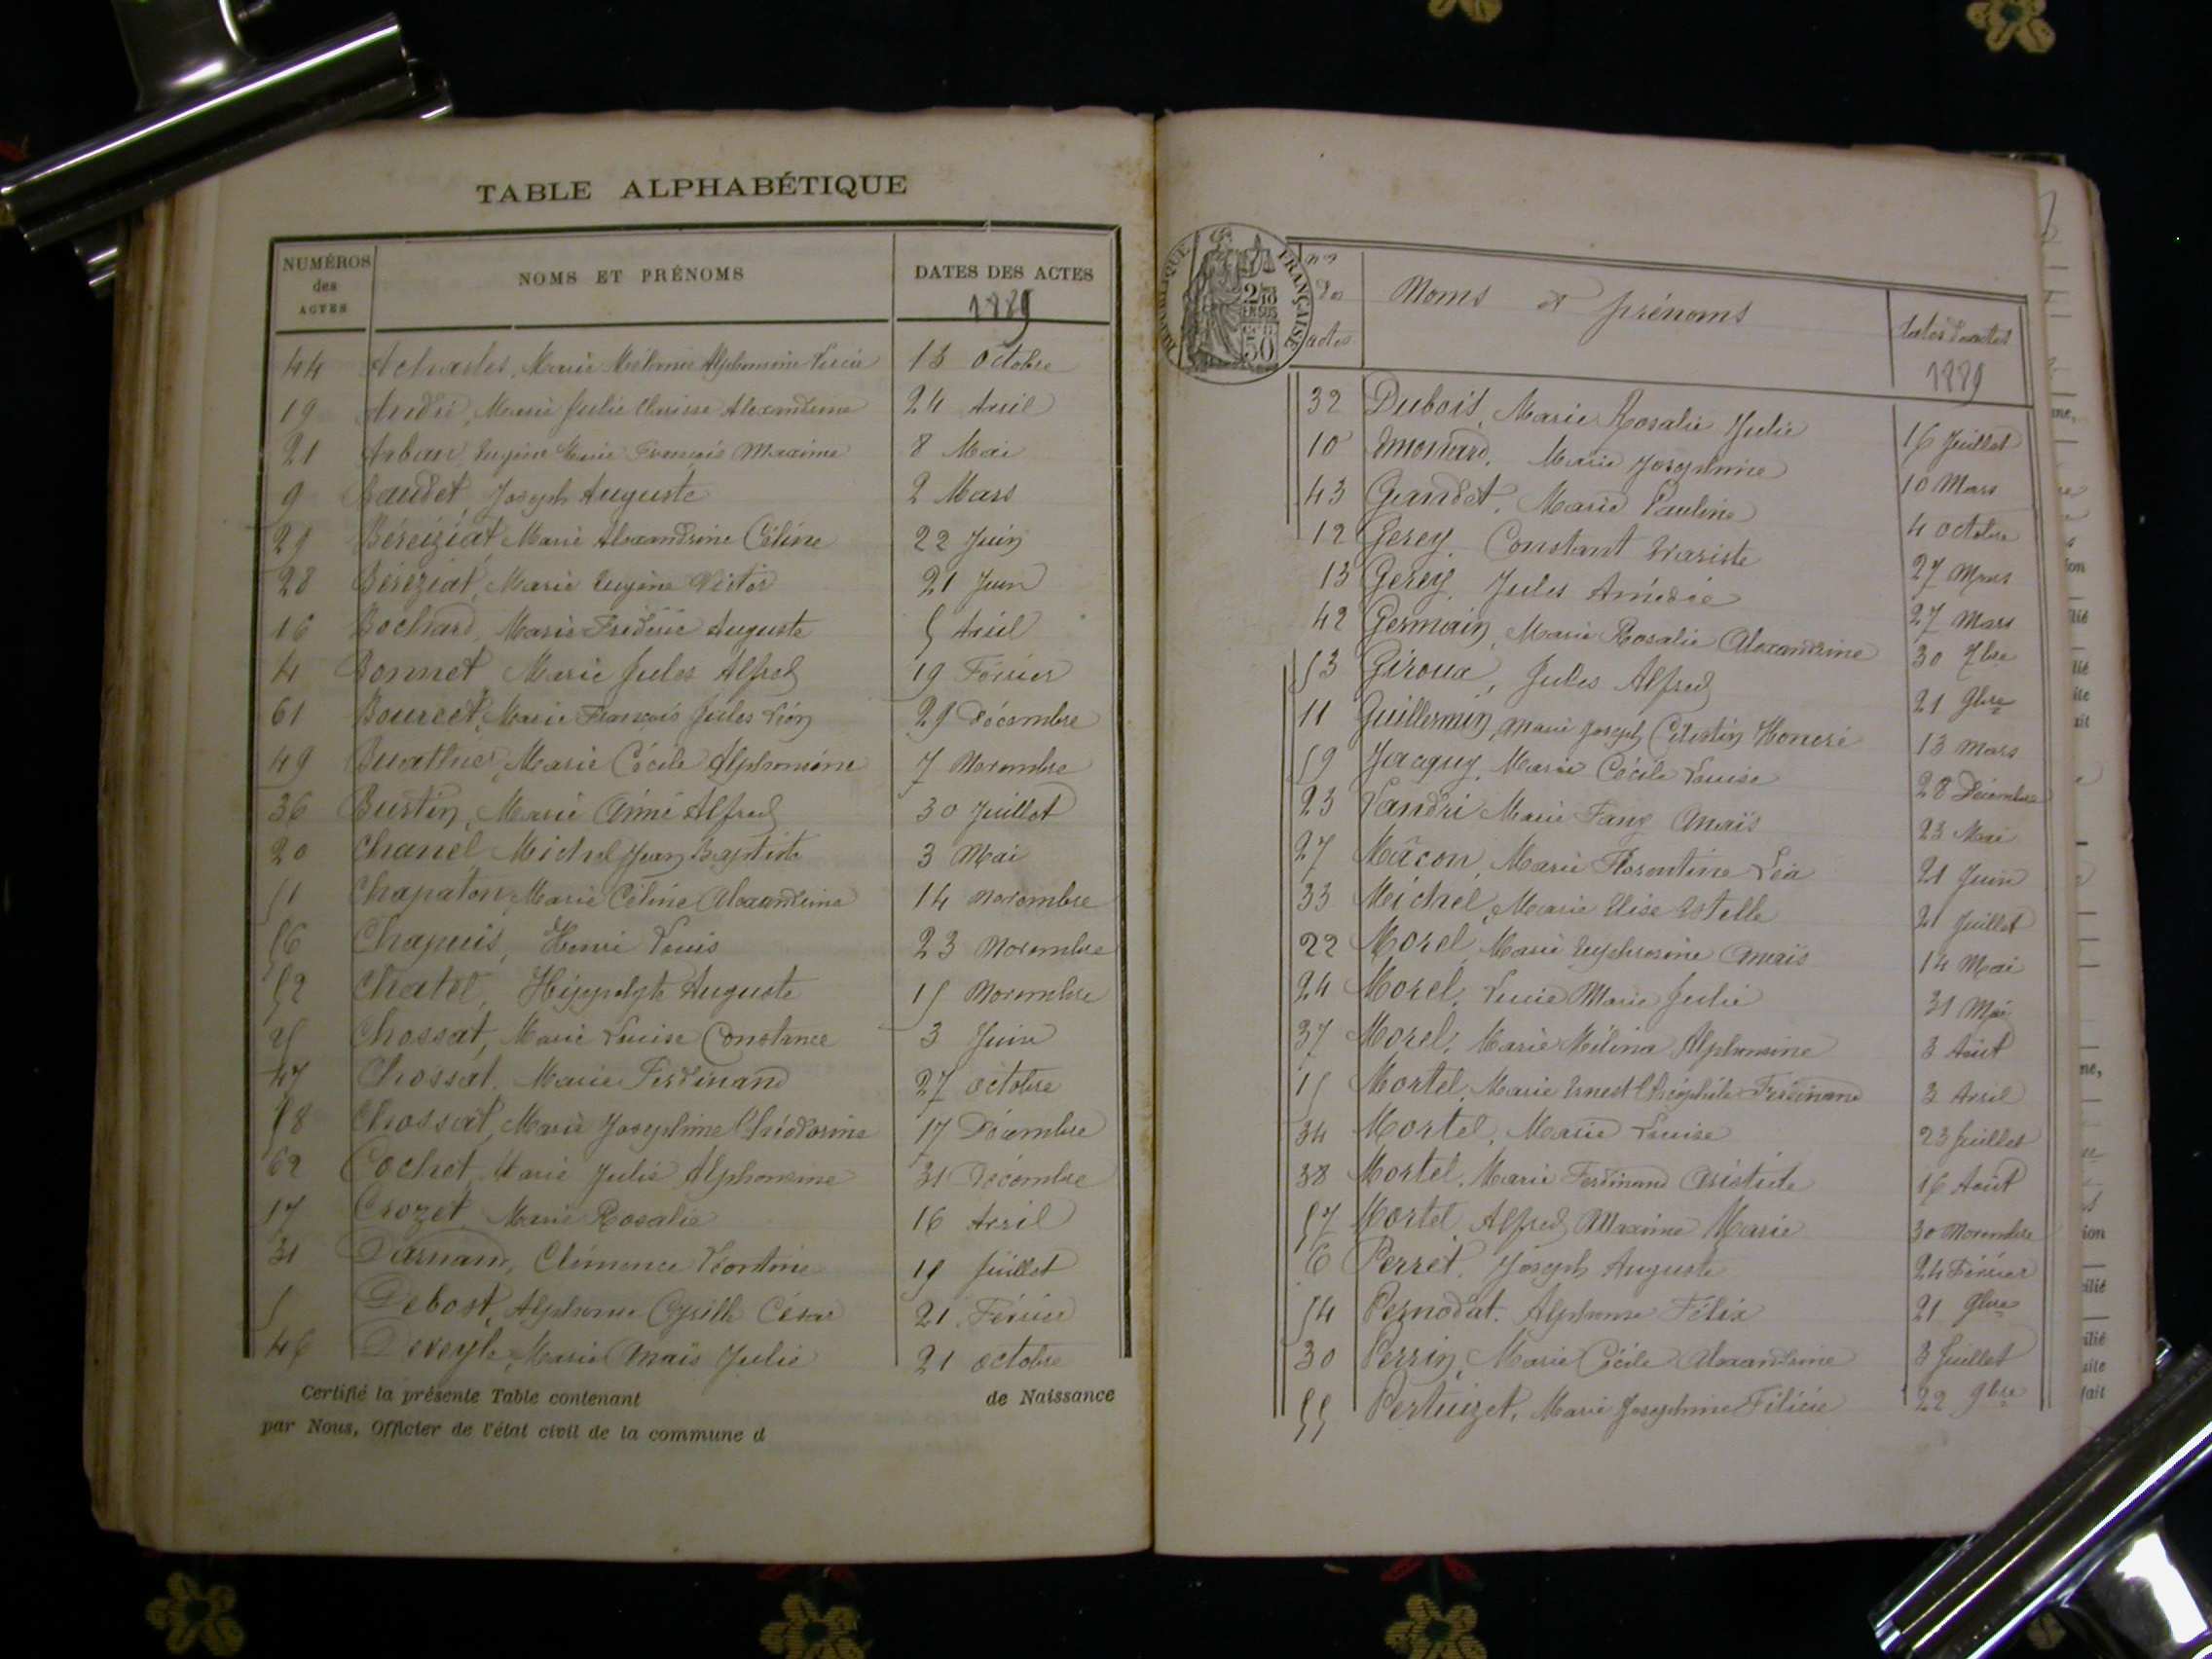 TABLE ALPHABÉTIQUE
NUMÉROS des ACTES
NOMS ET PRÉNOMS
DATES DES ACTES
1889
44 Marie Mélanie Alphonsine 13 Octobre
19 André, Marie Julie Clarisse Alexandrine 24 Avril
21 Arban Marie François Maxime 8 Mai
9 Baudet, Joseph Auguste 2 Mars
29 Béréziat Marie Alexandrine Céline 22 Juin
28 Béréziat, Marie Eugène Victor 21 Juin
16 Bochard, Marie Frédéric Auguste 5 Avril
4 Bonnet Marie Jules Alfred 19 Février
61 Bourcet, Marie François Jules Léon 29 Décembre
49 Buathier, Marie Cécile Alphonsine 7 Novembre
36 Bustin, Marie Aimé Alfred 30 Juillet
20 Chanel Michel Jean Baptiste 3 Mai
51 Chapaton, Marie Céline Alexandrine 14 Novembre
56 Chapuis, Henri Louis 23 Novembre
52 Chatel, Hippolyte Auguste 15 Novembre
25 Chossat, Marie Louise Constance 3 Juin
47 Chossat, Marie Ferdinand 27 octobre
58 Chossat, Marie Josephine Théodorine 17 Décembre
62 Cochet, Marie Julie Alphonsine 31 Décembre
17 Crozet Marie Rosalie 16 Avril
31 Darnand, Clémence Léontine 15 Juillet
5 Debost, Alphonse Cyrille César 21 Février
46 Deveyle, Marie Anaïs Julie 21 octobre
Certifié la présente Table contenant de Naissance
par Nous, Officier de l'état civil de la commune d
RÉPUBLIQUE FRANÇAISE
2/10 EN SUS
50
nos des actes
Noms et prénoms
dates des actes
1889
32 Dubois, Marie Rosalie Julie 16 Juillet
10 Emonard, Marie Josephine 10 Mars
43 Gaudet, Marie Pauline 4 octobre
12 Gerey, Constant Evariste 27 Mars
13 Gerey, Jules Amédée 27 Mars
42 Germain, Marie Rosalie Alexandrine 30 7bre
53 Giroux, Jules Alfred 21 9bre
11 Guillermin, Marie Joseph Célestin Honoré 13 Mars
59 Jacquy, Marie Cécile Louise 28 Décembre
23 Landri Marie Fany Anaïs 23 Mai
27 Mâcon, Marie Florentine Léa 21 Juin
33 Michel, Marie Elise Estelle 21 Juillet
22 Morel, Marie Euphrosine Anaïs 14 Mai
24 Morel, Lucie Marie Julie 31 Mai
37 Morel, Marie Mélina Alphonsine 3 Août
15 Mortel, Marie Ernest Théophile Ferdinand 3 Avril
34 Mortel, Marie Louise 23 Juillet
38 Mortel, Marie Ferdinand Aristide 16 Août
57 Mortel Alfred Maxime Marie 30 Novembre
6 Perret, Joseph Auguste 24 Février
54 Pernodat, Alphonse Félix 21 9bre
30 Perrin, Marie Cécile Alexandrine 3 Juillet
55 Pertuizet, Marie Josephine Félicie 22 9bre